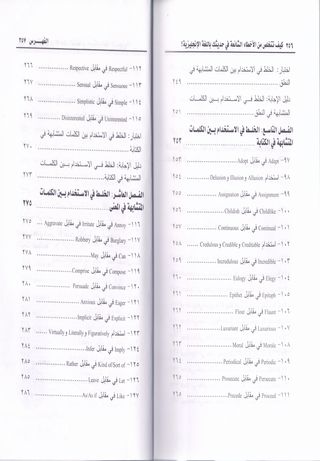 ٢٥٦ كيف تتخلص من الأخطاء الشائعة في حديثك باللغة الإنجليزية؟
اختبار: الخلط في الاستخدام بين الكلمات المتشابهة في
النطق ٢٤٩
دليل الإجابة: الخلط في الاستخدام بين الكلمات
المتشابهة في النطق ٢٥١
الفصل التاسع: الخلط في الاستخدام بين الكلمات
المتشابهة في الكتابة ٢٥٣
٩٧- Adapt في مقابل Adopt ٢٥٣
٩٨- استخدام Allusion و Illusion و Delusion
٩٩- Assignment في مقابل Assignation
١٠٠- Childlike في مقابل Childish
١٠١- Continual في مقابل Continuous
١٠٢- استخدام Creditable و Credible و Credulous
١٠٣- Incredible في مقابل Incredulous
١٠٤- Elegy في مقابل Eulogy
١٠٥- Epitaph في مقابل Epithet
١٠٦- Flaunt في مقابل Flout
١٠٧- Luxurious في مقابل Luxuriant
١٠٨- Morale في مقابل Moral
١٠٩- Periodic في مقابل Periodical
١١٠- Persecute في مقابل Prosecute
١١١- Proceed في مقابل Precede ٢٦٥
الفهرس ٢٥٧
١١٢- Respectful في مقابل Respective ٢٦٦
١١٣- Sensuous في مقابل Sensual ٢٦٧
١١٤- Simple في مقابل Simplistic ٢٦٨
١١٥- Uninterested في مقابل Disinterested
اختبار: الخلط في الاستخدام بين الكلمات المتشابهة
في الكتابة
دليل الإجابة: الخلط في الاستخدام بين الكلمات المتشابهة في
الكتابة ٢٧٣
الفصل العاشر: الخلط في الاستخدام بين الكلمات
المتشابهة في المعنى ٢٧٥
١١٦- Annoy في مقابل Irritate في مقابل Aggravate ٢٧٥
١١٧- Burglary في مقابل Robbery ٢٧٧
١١٨- Can في مقابل May ٢٧٨
١١٩- Compose في مقابل Comprise ٢٧٩
١٢٠- Convince في مقابل Persuade ٢٨٠
١٢١- Eager في مقابل Anxious ٢٨١
١٢٢- Explicit في مقابل Implicit ٢٨٢
١٢٣- استخدام Figuratively و Literally و Virtually ٢٨٣
١٢٤- Imply في مقابل Infer ٢٨٤
١٢٥- Kind of Sort of في مقابل Rather ٢٨٥
١٢٦- Let في مقابل Leave ٢٨٥
١٢٧- Like في مقابل As/As if ٢٨٦